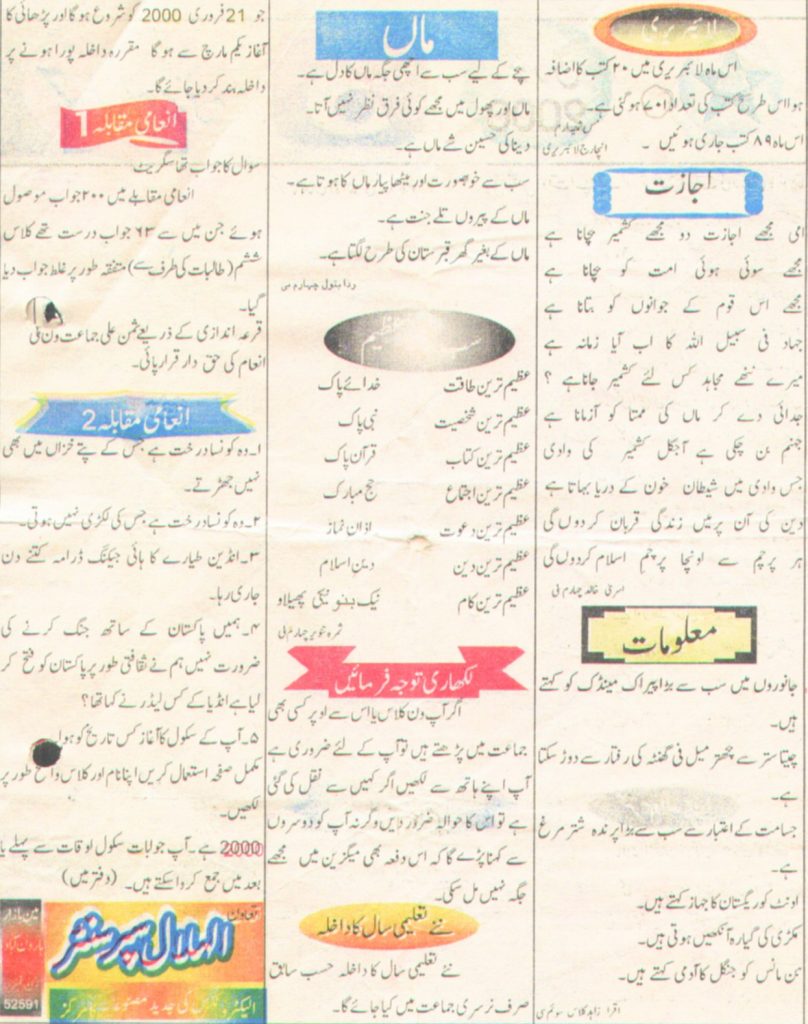 لائبریری
اس ماہ لائبریری میں ۲۰ کتب کا اضافہ
ہوا اس طرح کتب کی تعداد ۷۰۱ ہو گئی ہے۔
اس ماہ ۸۹ کتب جاری ہوئیں ۔
انچارج لائبریری
اجازت
امی مجھے اجازت دو مجھے کشمیر جانا ہے
مجھے سوئی ہوئی امت کو جگانا ہے
مجھے اس قوم کے جوانوں کو بتانا ہے
جہاد فی سبیل اللہ کا اب آیا زمانہ ہے
میرے ننھے مجاہد کس لئے کشمیر جانا ہے ؟
جدائی دے کر ماں کی ممتا کو آزمانا ہے
جہنم بن چکی ہے آجکل کشمیر کی وادی
جس وادی میں شیطان خون کے دریا بہاتا ہے
دین کی آن پر میں زندگی قربان کر دوں گی
ہر پرچم سے اونچا پرچم اسلام کردوں گی
خالد چہارم بی
معلومات
جانوروں میں سب سے بڑا پیراک مینڈک کو کہتے
ہیں۔
چیتا ستر سے پچھتر میل فی گھنٹہ کی رفتار سے دوڑ سکتا
ہے۔
جسامت کے اعتبار سے سب سے بڑا پرندہ شتر مرغ
ہے۔
اونٹ کو ریگستان کا جہاز کہتے ہیں۔
مکڑی کی گیارہ آنکھیں ہوتی ہیں۔
بن مانس کو جنگل کا آدمی کہتے ہیں۔
اقرا زاہد کلاس سوئم سی
ماں
بچے کے لیے سب سے اچھی جگہ ماں کا دل ہے۔
ماں اور پھول میں مجھے کوئی فرق نظر نہیں آتا۔
دنیا کی حسین شے ماں ہے۔
سب سے خوبصورت اور میٹھا پیار ماں کا ہوتا ہے۔
ماں کے پیروں تلے جنت ہے۔
ماں کے بغیر گھر قبرستان کی طرح لگتا ہے۔
ردا بتول چہارم سی
سب سے عظیم
عظیم ترین طاقت خدائے پاک
عظیم ترین شخصیت نبی پاک
عظیم ترین کتاب قرآن پاک
عظیم ترین اجتماع حج مبارک
عظیم ترین دعوت اذان نماز
عظیم ترین دین دین اسلام
عظیم ترین کام نیک بنو نیکی پھیلاو
ثمرہ تنویر چہارم بی
لکھاری توجہ فرمائیں
اگر آپ ون کلاس یا اس سے اوپر کسی بھی
جماعت میں پڑھتے ہیں تو آپ کے لئے ضروری ہے
آپ اپنے ہاتھ سے لکھیں اگر کہیں سے نقل کی گئی
ہے تو اس کا حوالہ ضرور دیں وگرنہ آپ کو دوسروں
سے کہنا پڑے گا کہ اس دفعہ بھی میگزین میں مجھے
جگہ نہیں مل سکی۔
نئے تعلیمی سال کا داخلہ
نئے تعلیمی سال کا داخلہ حسب سابق
صرف نرسری جماعت میں کیا جائے گا۔
جو 21 فروری 2000 کو شروع ہوگا اور پڑھائی کا
آغاز یکم مارچ سے ہو گا مقررہ داخلہ پورا ہونے پر
داخلہ بند کر دیا جائے گا۔
انعامی مقابلہ 1
سوال کا جواب تھا سگریٹ
انعامی مقابلے میں ۲۰۰ جواب موصول
ہوئے جن میں سے ۶۳ جواب درست تھے کلاس
ششم (طالبات کی طرف سے) متفقہ طور پر غلط جواب دیا
گیا۔
قرعہ اندازی کے ذریعے ثمن علی جماعت ون بی
انعام کی حق دار قرار پائی۔
انعامی مقابلہ 2
۱۔ وہ کونسا درخت ہے جس کے پتے خزاں میں بھی
نہیں جھڑتے۔
۲۔ وہ کونسا درخت ہے جس کی لکڑی نہیں ہوتی۔
۳۔ انڈین طیارے کا ہائی جیکنگ ڈرامہ کتنے دن
جاری رہا۔
۴۔ ہمیں پاکستان کے ساتھ جنگ کرنے کی
ضرورت نہیں ہم نے ثقافتی طور پر پاکستان کو فتح کر
لیا ہے انڈیا کے کس لیڈر نے کہا تھا؟
۵۔ آپ کے سکول کا آغاز کس تاریخ کو ہوا۔
مکمل صفحہ استعمال کریں اپنا نام اور کلاس واضح طور پر
لکھیں۔
2000 ہے۔ آپ جوابات سکول اوقات سے پہلے یا
بعد میں جمع کروا سکتے ہیں۔ (دفتر میں)
تعاون
الہلال سپر سنٹر
مین بازار
ہارون آباد
فون نمبر
52591
کی جدید مصنوعات